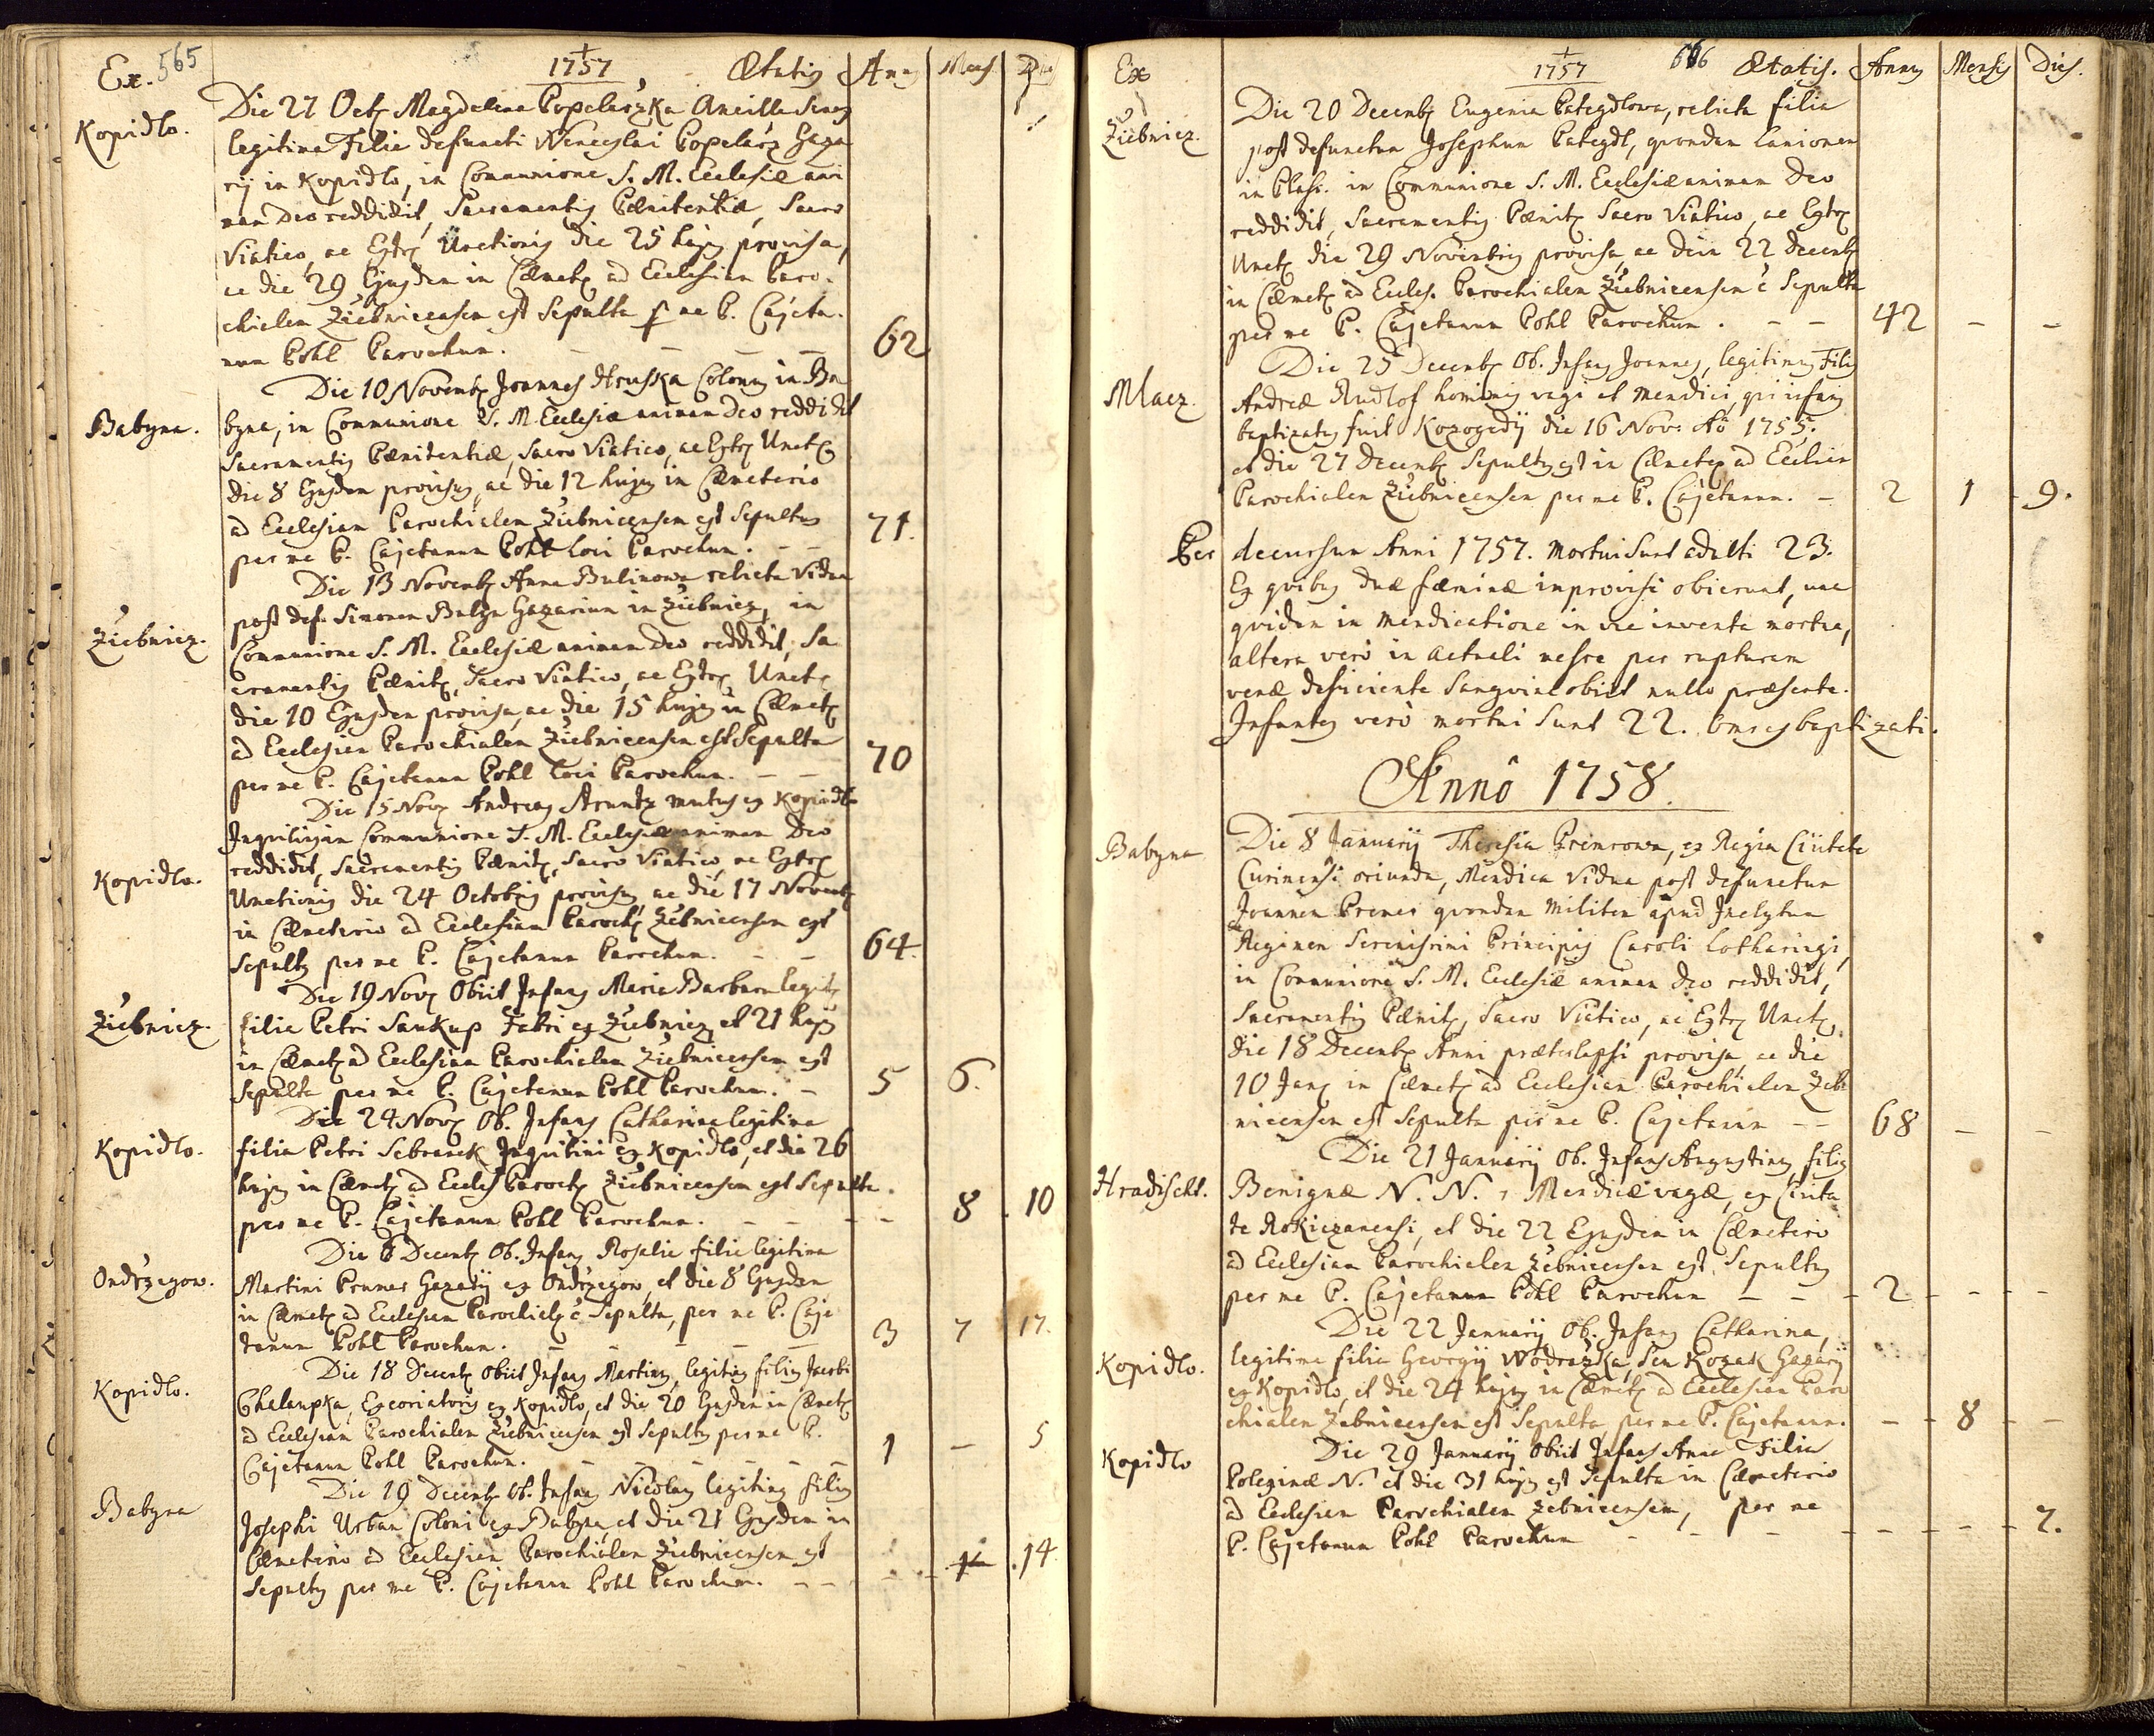 565
Ex. 1757 Ætatis Annus Mens. Dies
Kopidlo. Die 27 Octb Magdalena Popelarzka Ancilla Senex
legitima Filia defuncti Wenceslai Popelarz Gaza
rij in Kopidlo, in Communione S. M. Ecclesiæ ani
mam Deo reddidit, Sacramentis Pænitentiæ, Sacro
Viatico, ac Extr. Unctionis die 25 hujus provisa,
ac die 29 Ejusdem in Cæmet. ad Ecclesiam Paro-
chialem Žiebnicensem est Sepulta per me P. Cajeta-
num Pohl Parochum. 62
Babyna. Die 10 Novemb. Joannes Hruska Colonus in Ba
byna, in Communione S. M. Ecclesiæ animam Deo reddidit
Sacramentis Pænitentiæ, Sacro Viatico, ac Extr. Unct.
die 8 Ejusdem provisus, ac die 12 hujus in Cæmeterio
ad Ecclesiam Parochialem Žiebnicensem est Sepultus
per me P. Cajetanum Pohl loci Parochum. 71.
Žiebnicz. Die 13 Novemb. Anna Bulinowa relicta Vidua
post def. Simonem Bulyn Gazarium in Žiebnicz, in
Communione S. M. Ecclesiæ animam Deo reddidit, Sa
cramentis Pænit., Sacro Viatico, ac Extr. Unct.
die 10 Ejusdem provisa, ac die 15 hujus in Cæmet.
ad Ecclesiam Parochialem Žiebnicensem est Sepulta
per me P. Cajetanum Pohl loci Parochum. 70
Kopidlo. Die 15 Nov. Andreas mutus ex Kopidlo
Inquilinus in Communione S. M. Ecclesiæ animam Deo
reddidit, Sacramentis Pænit., Sacro Viatico, ac Extr.
Unctionis die 24 Octobris provisus, ac die 17 Novemb.
in Cæmeterio ad Ecclesiam Paroch. Žebnicensem est
Sepultus per me P. Cajetanum Parochum. 64.
Žiebnicz. Die 19 Nov. Obiit Infans Maria Barbara legit.
filia Petri Saukup Fabri ex Žiebnicz, et 21 hujus
in Cæmet. ad Ecclesiam Parochialem Žiebnicensem est
Sepulta per me P. Cajetanum Pohl Parochum. 5 6.
Kopidlo. Die 24 Nov. Ob. Infans Catharina legitima
filia Petri Sebranek Inquilini ex Kopidlo, et die 26
hujus in Cæmet. ad Eccles. Paroch. Žiebnicensem est Sepulta.
per me P. Cajetanum Pohl Parochum. - - 8 10
Ondrzegow. Die 6 Decemb. Ob. Infans Rosalia filia legitima
Martini Prunar Gazarij ex Ondrzegow, et die 8 Ejusdem
in Cæmet. ad Ecclesiam Parochial. ē Sepulta, per me P. Caje
tanum Pohl Parochum. 3 7 17.
Kopidlo. Die 18 Decemb. Obiit Infans Martinus, legitimus filius Jacobi
Chalaupka, Excoriatoris ex Kopidlo, et die 20 Ejusdem in Cæmet.
ad Ecclesiam Parochialem Žiebnicensem est Sepultus per me P.
Cajetanum Pohl Parochum. 1 - 5
Babyna Die 19 Decemb. Ob. Infans Nicolaus legitimus filius
Josephi Urban Coloni ex Babyna, et die 21 Ejusdem in
Cæmeterio ad Ecclesiam Parochialem Žiebnicensem est
Sepultus per me P. Cajetanum Pohl Parochum. 14
566
Ex 1757 Ætatis. Annus Mensis Dies.
Žiebnicz. Die 20 Decemb. Eugenia Pategdlowa, relicta filia
post defunctum Josephum Pategdl, quondam Lanionem
in Plass. in Communione S. M. Ecclesiæ animam Deo
reddidit, Sacramentis Pænit. Sacro Viatico, ac Extr.
Unct. die 29 Novembris provisa, ac dein 22 Decemb.
in Cæmet. ad Eccles. Parochialem Žiebnicensem ē Sepulta
per me P. Cajetanum Pohl Parochum. 42 - -
Macz. Die 25 Decemb. Ob. Infans Joannes, legitimus Filius
Andreæ Rudlof hominis vagi et mendici, qui infans
baptizatus fuit Kozogedij die 16 Nov. Aō 1755.
et die 27 Decemb. Sepultus est in Cæmet. ad Eccliam
Parochialem Žiebnicensem per me P. Cajetanum. 2 1 9.
Per decursum Anni 1757. Mortui Sunt adulti 23.
Ex quibus duæ fæminæ improvisè obierunt, una
quidem in mendicatione in via inventa mortua,
altera verò in actuali per rupturam
venæ deficiente Sanguine obiit nullo præsente.
Infantes verò mortui Sunt 22. omnes baptizati.
Annô 1758.
Babyna Die 8 Januarij Theresia Premrowa, ex Regia Civitate
Curimensi oriunda, Mendica Vidua post defunctum
Joannem Premer quondam Militem apud Inclytum
Regimen Serenissimi Principis Caroli Lotharingi,
in Communione S. M. Ecclesiæ animam Deo reddidit,
Sacramentis Pænit., Sacro Viatico, ac Extr. Unct.
die 18 Decemb. Anni præterlapsi provisa ac die
10 Jan. in Cæmet. ad Ecclesiam Parochialem Žeb
nicensem est Sepulta per me P. Cajetanum - - 68 - -
Hradischt. Die 21 Januarij Ob. Infans Augustinus filius
Benignæ N. N., Mendicæ vagæ, ex Civita
te Rokiczanensi, et die 22 Ejusdem in Cæmeterio
ad Ecclesiam Parochialem Žebnicensem est Sepultus
per me P. Cajetanum Pohl Parochum - - 2 - -
Kopidlo. Die 22 Januarij Ob. Infans Catharina,
legitima filia Georgij Wodrazka, Seu Kozak Gazarij
ex Kopidlo, et die 24 hujus in Cæmet. ad Ecclesiam Paro
chialem Žebnicensem est Sepulta, per me P. Cajetanum. - 8 -
Kopidlo Die 29 Januarij Obiit Infans Anna Filia
Poleginæ N. et die 31 hujus est Sepulta in Cæmeterio
ad Ecclesiam Parochialem Žebnicensem, per me
P. Cajetanum Pohl Parochum - - - 7.